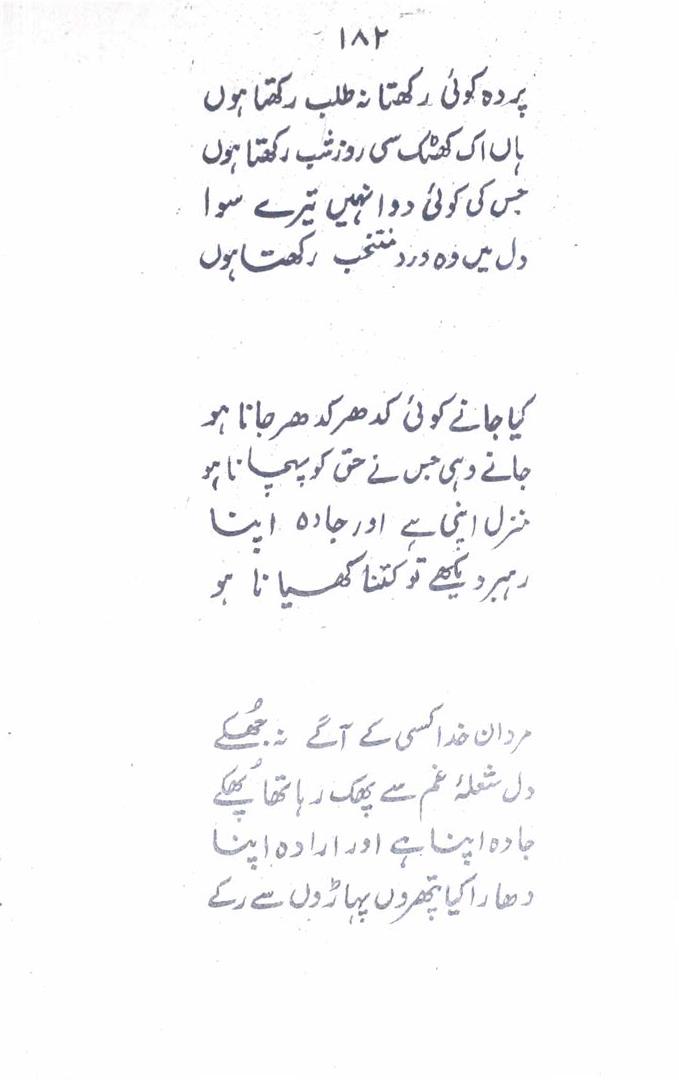 ۱۸۲
پردہ کوئی رکھتا نہ طلب رکھتا ہوں
ہاں اک کھٹک سی روز شب رکھتا ہوں
جس کی کوئی دوا نہیں تیرے سوا
دل میں وہ درد منتخب رکھتا ہوں
کیا جانے کوئی کدھر کدھر جانا ہو
جانے وہی جس نے حق کو پہچانا ہو
منزل اپنی ہے اور جادہ اپنا
رہبر دیکھے تو کتنا کھسیانا ہو
مردان خدا کسی کے آگے نہ جُھکے
دل شعلۂ غم سے پھک رہا تھا پُھکے
جادہ اپنا ہے اور ارادہ اپنا
دھارا کیا پتھروں پہاڑوں سے رکے